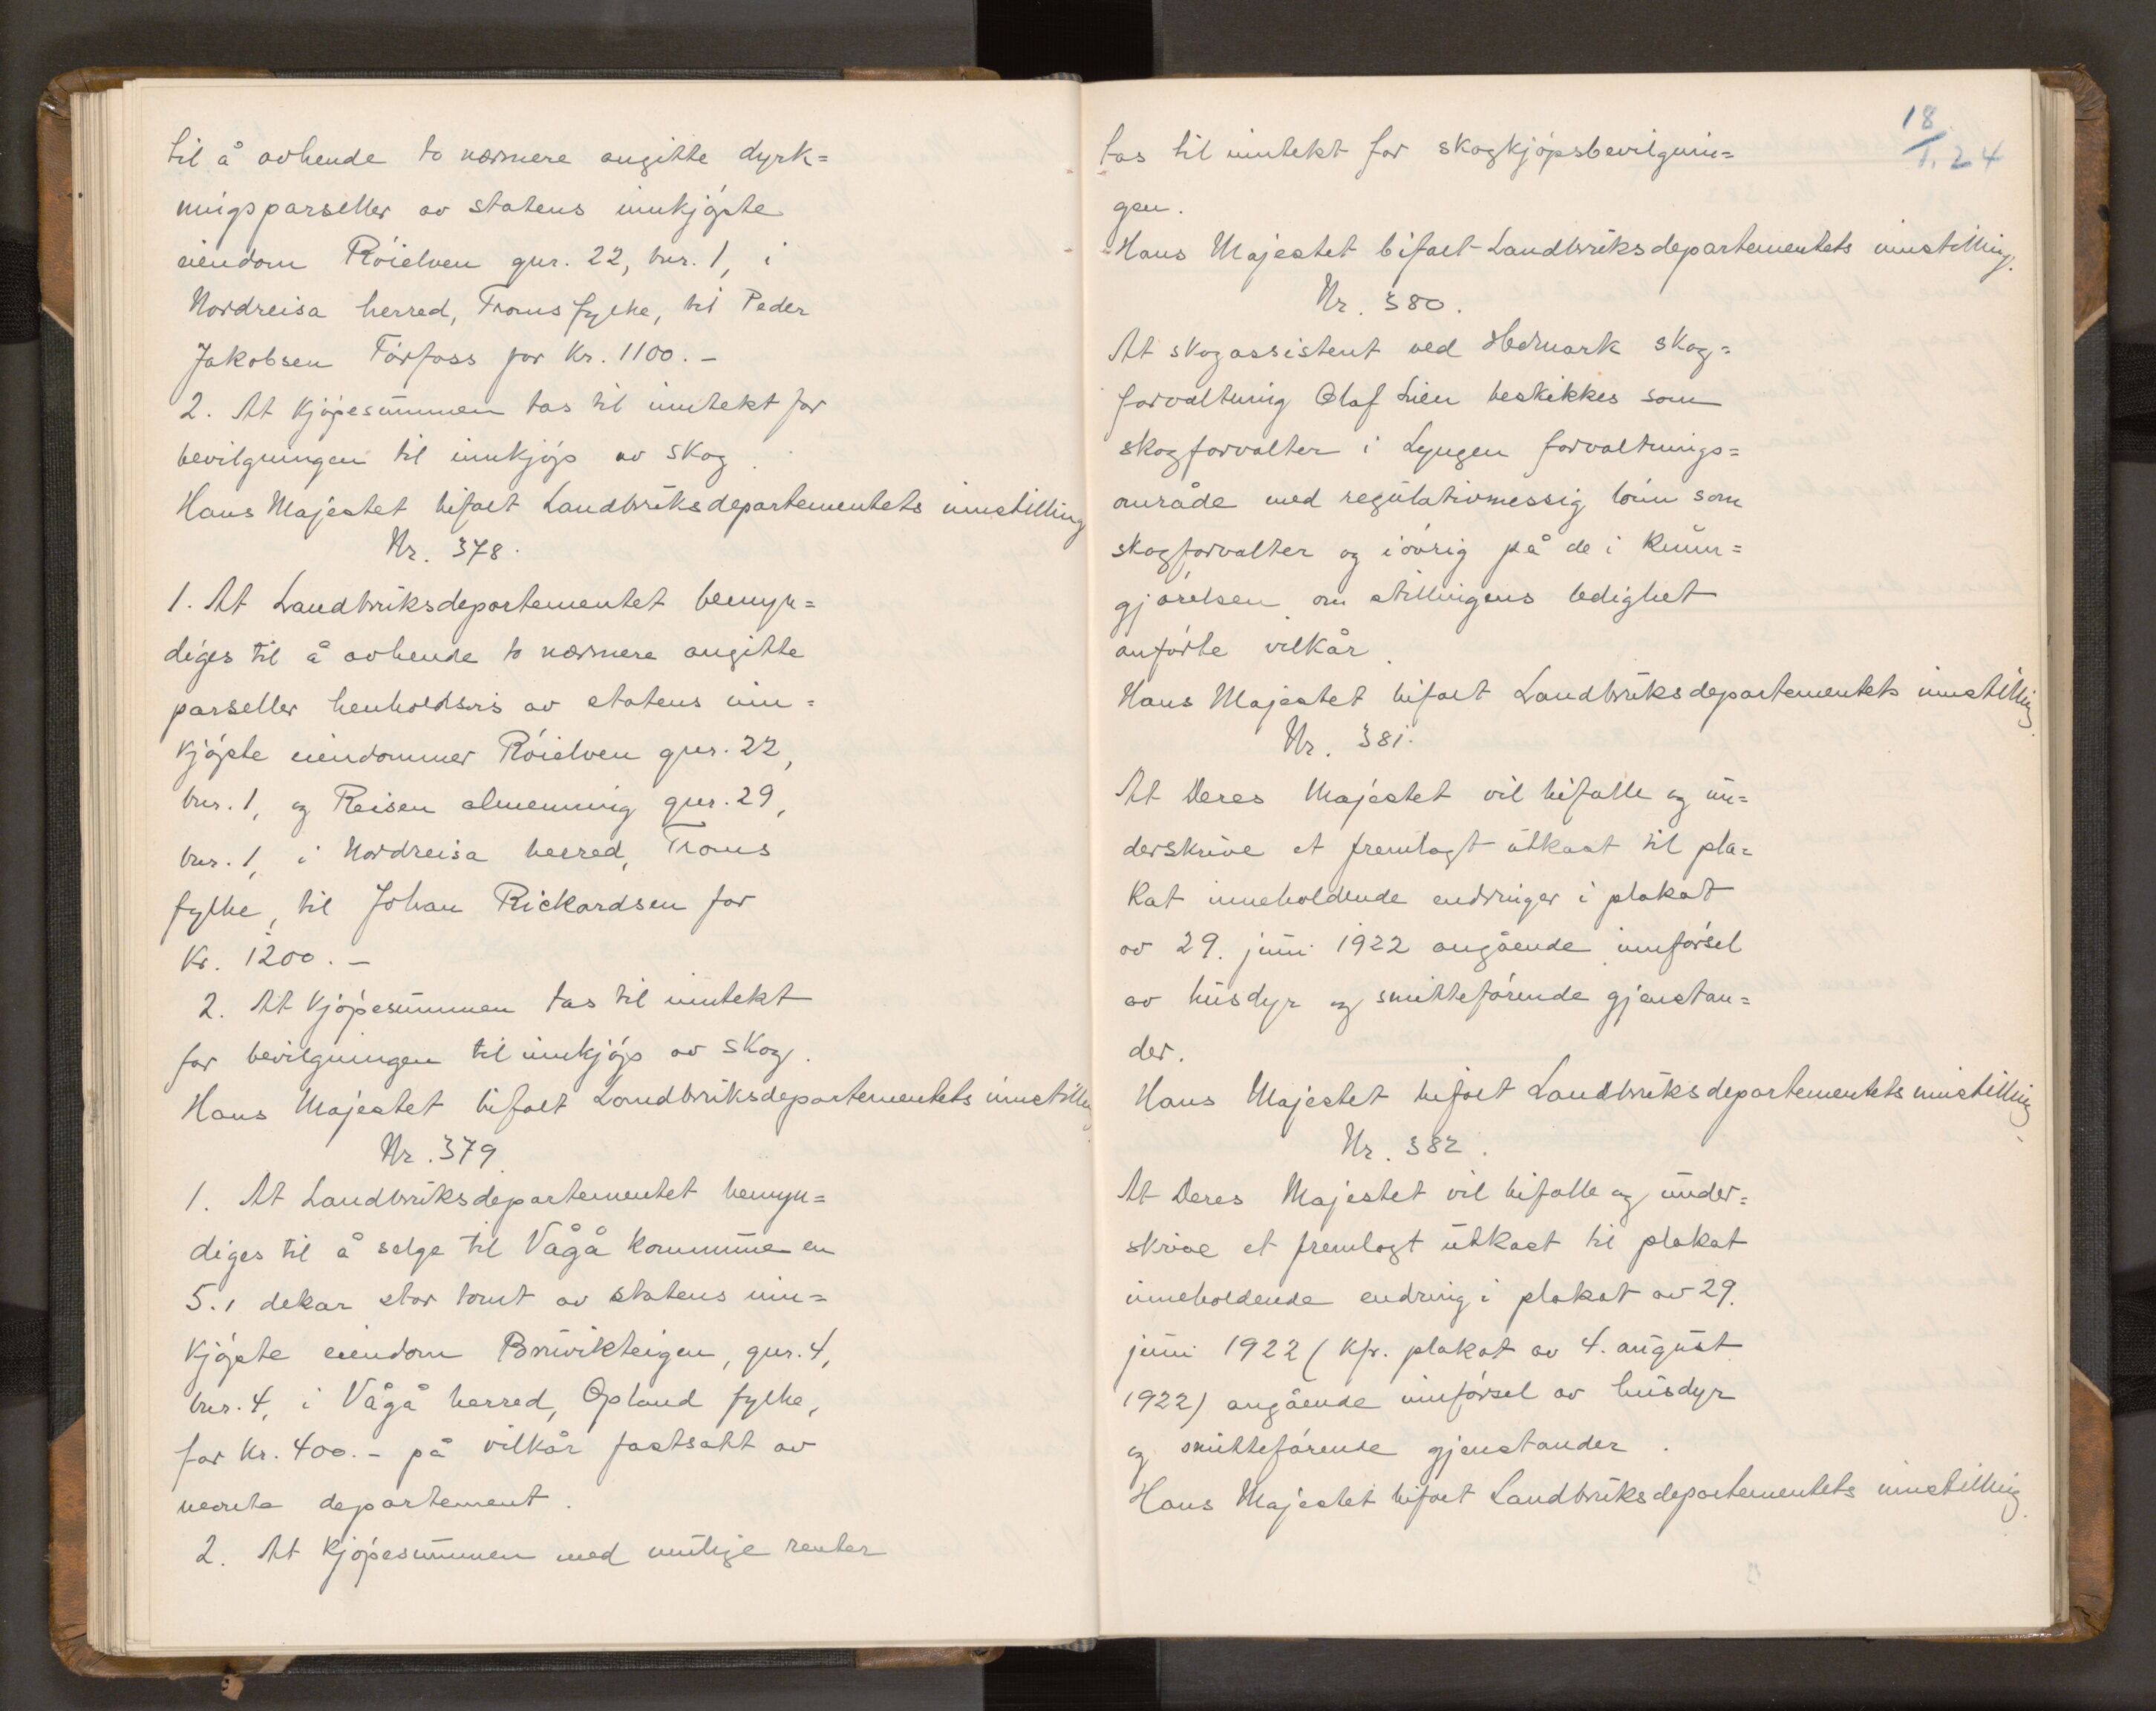 til å avhende to nærmere angitte dyrk=
ningsparseller av statens innkjöpte
eiendom Röielven gnr. 22, bnr. 1, i
Nordreisa herred, Troms fylke, til Peder
Jakobsen Törfoss for Kr. 1100.-
2. At kjöpesummen tas til inntekt for
bevilgningen til innkjöp av skog.
Hans Majestet bifalt Landbruksdepartementets innstilling
Nr. 378.
1. At Landbruksdepartementet bemyn=
diges til å avhende to nærmere angitte
parseller henholdsvis av statens inn=
kjöpte eiendommer Röielven gnr. 22,
bnr. 1, og Reisen almenning gnr. 29,
bnr. 1, i Nordreisa herred, Troms
fylke, til Johan Rickardsen for
Kr. 1200.-
2. At kjöpesummen tas til inntekt
for bevilgningen til innkjöp av skog.
Hans Majestet bifalt Landbruksdepartementets innstilling
Nr. 379.
1. At Landbruksdepartementet bemyn=
diges til å selge til Vågå kommune en
5.1 dekar stor tomt av statens inn=
kjöpte eiendom gnr. 4,
bnr. 4, i Vågå herred, Opland fylke,
for Kr. 400.- på vilkår fastsatt av
nevnte departement.
2. At kjöpesummen med mulige renter
18/1.24
tas til inntekt for skogkjöpsbevilgnin=
gen.
Hans Majestet bifalt Landbruksdepartementets innstilling.
Nr. 380.
At skogassistent ved Hedmark skog=
forvaltning Olaf Lien beskikkes som
skogforvalter i Lyngen forvaltnings=
område med regulativmessig lönn som
skogforvalter og iövrig på de i kunn=
gjörelsen om stillingens ledighet
anförte vilkår.
Hans Majestet bifalt Landbruksdepartementets innstilling.
Nr. 381.
At Deres Majestet vil bifalle og un=
derskrive et fremlagt utkast til pla=
kat inneholdende endringer i plakat
av 29. juni 1922 angående innförsel
av husdyr og smitteförende gjenstan=
der.
Hans Majestet bifalt Landbruksdepartementets innstilling.
Nr. 382.
At Deres Majestet vil bifalle og under=
skrive et fremlagt utkast til plakat
inneholdende endring i plakat av 29.
juni 1922 (kfr. plakat av 4. august
1922) angående innförsel av husdyr
og smitteförende gjenstander.
Hans Majestet bifalt Landbruksdepartementets innstilling.